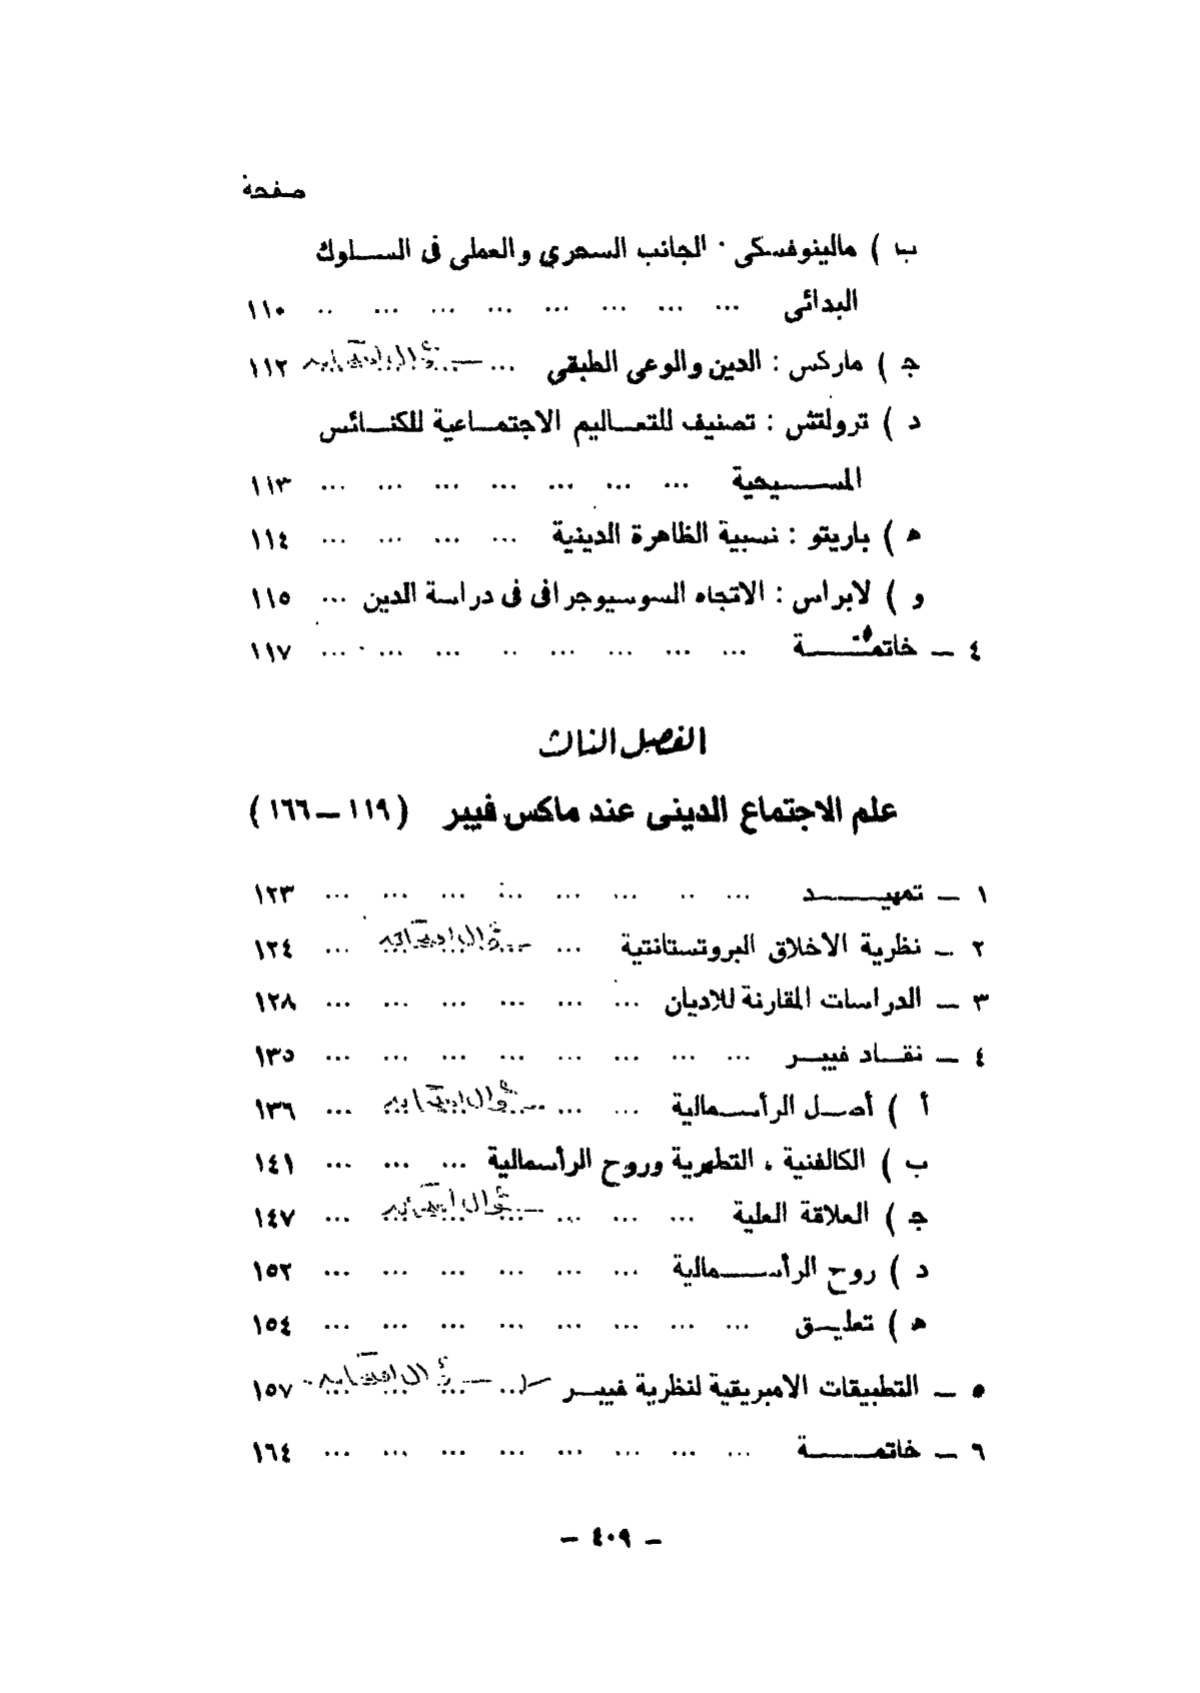 صفحة
ب ) مالينوفسكى · الجانب السحري والعملى فى السلوك
البدائى ... ... ... ... ... ... ... .. ١١٠
ج ) ماركس : الدين والوعى الطبقى ... — سؤال امتحانيه ١١٢
د ) ترولتش : تصنيف للتعاليم الاجتماعية للكنائس
المسيحية ... ... ... ... ... ... ... ١١٣
ه ) باريتو : نسبية الظاهرة الدينية ... ... ... ... ١١٤
و ) لابراس : الاتجاه السوسيوجرافى فى دراسة الدين ... ١١٥
٤ — خاتمة ... ... ... ... .. ... ... ... ١١٧
الفصل الثالث
علم الاجتماع الدينى عند ماكس فيبر ( ١١٩ — ١٦٦ )
١ — تمهيد ... .. ... ... ... ... ... ... ١٢٣
٢ — نظرية الاخلاق البروتستانتية ... — سؤال امتحانيه ... ١٢٤
٣ — الدراسات المقارنة للاديان ... ... ... ... ... ... ١٢٨
٤ — نقاد فيبر ... ... ... ... ... ... ... ... ١٣٥
أ ) أصل الرأسمالية ... ... — سؤال امتحانيه ... ١٣٦
ب ) الكالفنية ، التطهرية وروح الرأسمالية ... ... ... ١٤١
ج ) العلاقة العلية ... ... ... — سؤال امتحانيه ... ١٤٧
د ) روح الرأسمالية ... ... ... ... ... ... ١٥٢
ه ) تعليق ... ... ... ... ... ... ... ... ١٥٤
٥ — التطبيقات الامبريقية لنظرية فيبر — سؤال امتحانيه ١٥٧
٦ — خاتمة ... ... ... ... ... ... ... ... ١٦٤
— ٤٠٩ —